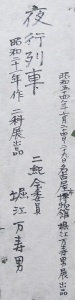 昭和五十四年十月二十四日〜二十八日名古屋博物館堀江万寿男展出品
夜行列車
昭和三十一年作 二科展出品
二紀会委員
堀江万寿男